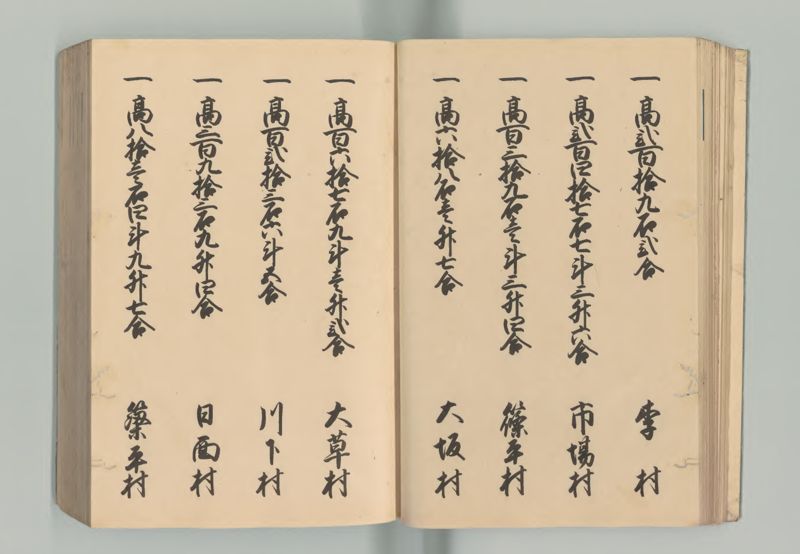 一 高弐百拾九石弐合 李村
一 高弐百四拾七石七斗三升六合 市場村
一 高百三拾九石壱斗三升四合 篠平村
一 高六拾八石壱升七合 大坂村
一 高百六拾七石九斗壱升弐合 大草村
一 高百弐拾三石六斗五合 川下村
一 高三百九拾三石九升四合 日面村
一 高八拾壱石四斗九升七合 築平村